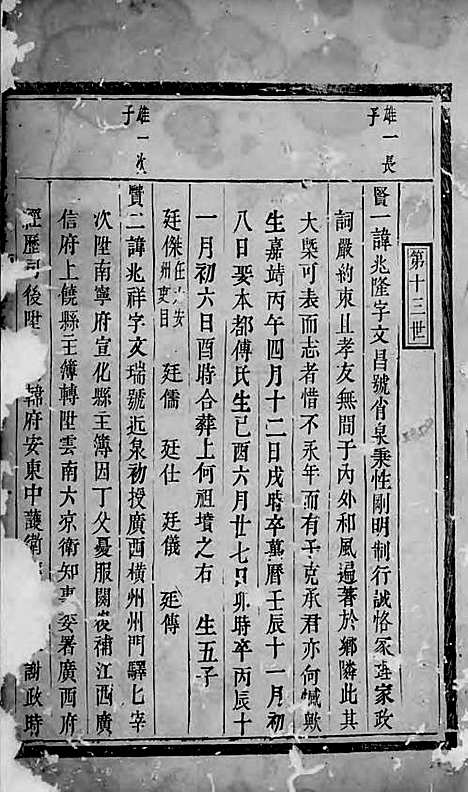 第十三世
雄一長子
賢一諱兆隆字文昌號肖泉秉性剛明制行誠恪冢 家政
詞嚴約束且孝友無間于內外和風遍著於鄉隣此其
大槩可表而志者惜不永年而有子克承君亦何憾歟
生嘉靖丙午四月十二日戌時卒萬曆壬辰十一月初
八日娶本都傅氏生己酉六月廿七日卯時卒丙辰十
一月初六日酉時合葬上何祖墳之右 生五子
廷傑任六安州吏目 廷儒 廷仕 廷儀 廷傳
雄一次子
賢二諱兆祥字文瑞號近泉初授廣西橫州州門驛七宰
次陞南寧府宣化縣主簿因丁父憂服闋後補江西廣
信府上饒縣主簿轉陞雲南大京衛知事 署廣西府
經歷司後陞 府安東中護衛 謝政時